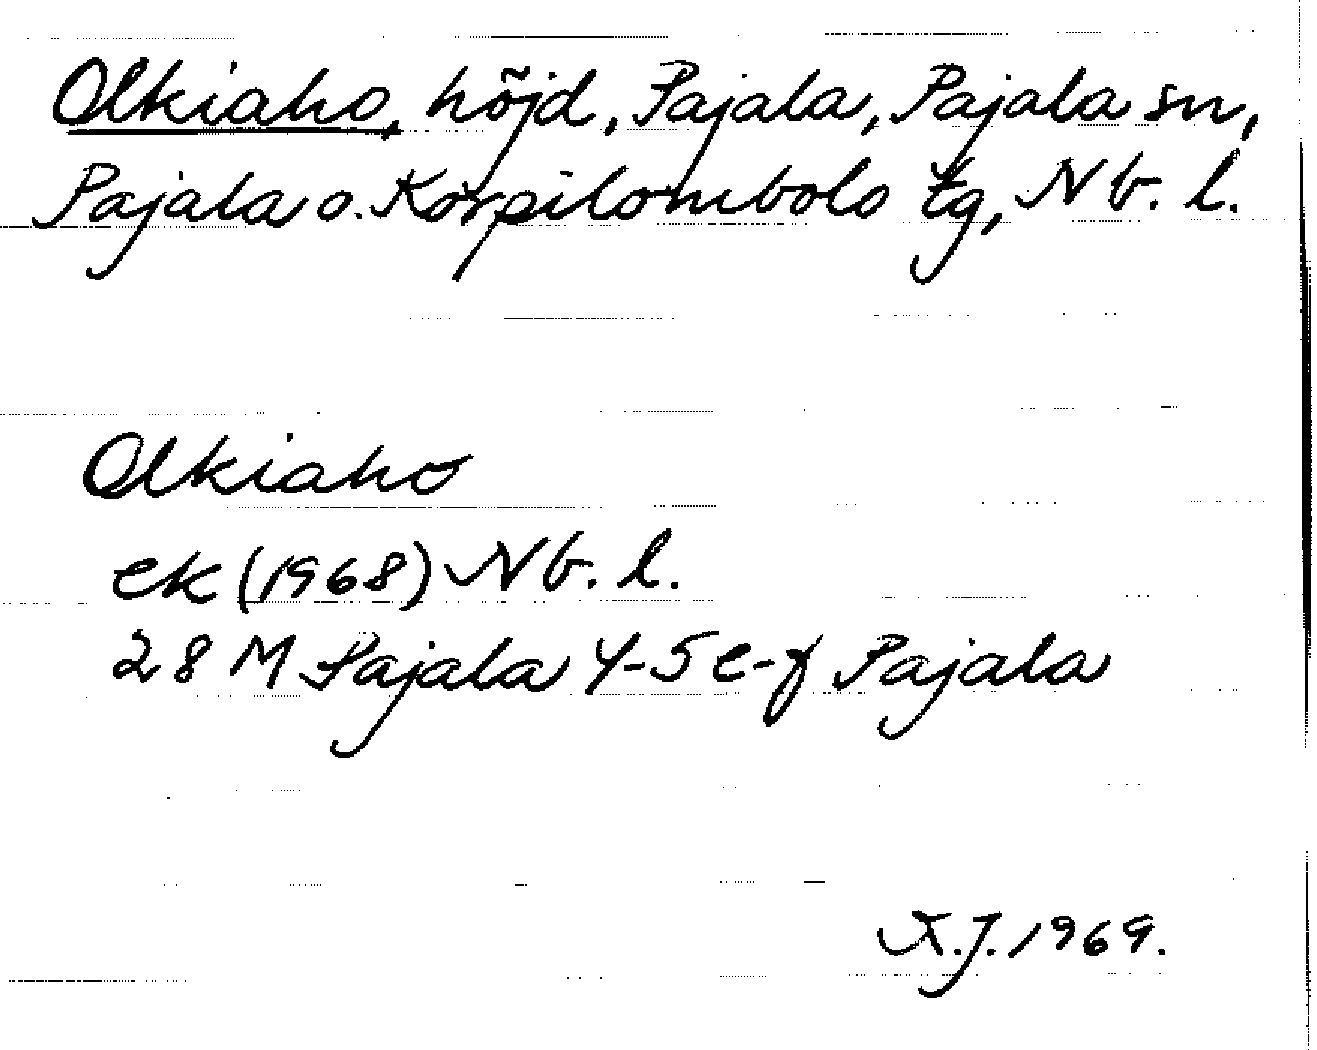 Olkiaho, höjd, Pajala, Pajala sn,
Pajala o. Korpilombolo tg, Nb. l.
Olkiaho
ek (1968) Nb. l.
28 M Pajala 4-5 e-f Pajala
X.J. 1969.